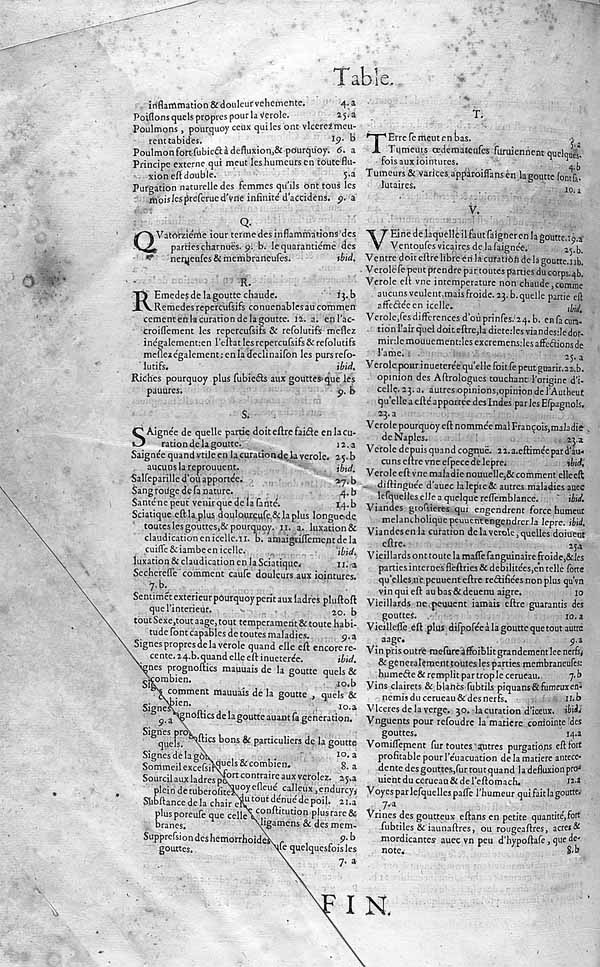 Table.
inflammation & douleur vehemente. 4. a
Poiſſons quels propres pour la verole. 25. a
Poulmons, pourquoy ceux qui les ont vlcerez meu-
rent tabides. 19. b
Poulmon fort ſubiect à defluxion, & pourquoy. 6. a
Principe externe qui meut les humeurs en toute flu-
xion eſt double. 5. a
Purgation naturelle des femmes qu'ils ont tous les
mois les preſerue d'vne infinité d'accidens. 9. a
Q.
QVatorziéme iour terme des inflammations des
parties charnuës. 9. b. le quarantiéme des
nerueuſes & membraneuſes. ibid.
R.
REmedes de la goutte chaude. 13. b
Remedes repercuſſifs conuenables au commen
cement en la curation de la goutte. 12. a. en l'ac-
croiſſement les repercuſſifs & reſolutifs meſlez
inégalement: en l'eſtat les repercuſſifs & reſolutifs
meſlez également: en la declinaiſon les purs reſo-
lutifs. ibid.
Riches pourquoy plus ſubiects aux gouttes que les
pauures. 9. b
S.
SAignée de quelle partie doit eſtre faicte en la cu-
ration de la goutte. 12. a
Saignée quand vtile en la curation de la verole. 25. b
aucuns la reprouuent. ibid.
Salſeparille d'où apportée. 27. b
Sang rouge de ſa nature. 4. b
Santé ne peut venir que de la ſanté. 14. b
Sciatique eſt la plus douloureuſe & la plus longue de
toutes les gouttes, & pourquoy. 11. a. luxation &
claudication en icelle. 11. b. amaigriſſement de la
cuiſſe & iambe en icelle. ibid.
luxation & claudication en la Sciatique. 11. a
Sechereſſe comment cauſe douleurs aux iointures.
7. b.
Sentimēt exterieur pourquoy perit aux ladres pluſtoſt
que l'interieur. 20. b
tout Sexe, tout aage, tout temperament & toute habi-
tude ſont capables de toutes maladies. 9. a
Signes propres de la verole quand elle eſt encore re-
cente. 24. b. quand elle eſt inueterée. ibid.
ignes prognoſtics mauuais de la goutte quels &
combien. 10. b
Sig comment mauuais de la goutte, quels &
bien. 10. a
Signes gnoſtics de la goutte auant ſa generation.
9. a
Signes pro ſtics bons & particuliers de la goutte
quels. 10. a
Signes de la go quels & combien. 8. a
Sommeil exceſſif fort contraire aux verolez. 25. a
Sourcil aux ladres po quoy eſleué calleux, endurcy,
plein de tuberoſité du tout dénué de poil. 21. a
Subſtance de la chair e conſtitution plus rare &
plus poreuſe que celle ligamens & des mem-
branes. 9. b
Suppreſsion des hemorrhoides uſe quelquesfois les
gouttes. 7. a
T.
TErre ſe meut en bas. 5. a
Tumeurs œdemateuſes ſuruiennent quelques-
fois aux iointures. 4. b
Tumeurs & varices apparoiſſans en la goutte ſont ſa-
lutaires. 10. a
V.
VEine de laquelle il faut ſaigner en la goutte. 12. a
Ventouſes vicaires de la ſaignée. 25. b.
Ventre doit eſtre libre en la curation de la goutte. 11b.
Verole ſe peut prendre par toutes parties du corps. 4b.
Verole eſt vne intemperature non chaude, comme
aucuns veulent, mais froide. 23. b. quelle partie eſt
affectée en icelle. ibid.
Verole, ſes differences d'où prinſes. 24. b. en ſa cura-
tion l'air quel doit eſtre, la diete: les viandes: le dor-
mir: le mouuement: les excremens: les affections de
l'ame. 25. a
Verole pour inueterée qu'elle ſoit ſe peut guarir. 22. b.
opinion des Aſtrologues touchant l'origine d'i-
celle. 23. a. autres opinions, opinion de l'Autheur
qu'elle a eſté apportée des Indes par les Eſpagnols.
23. a
Verole pourquoy eſt nommée mal François, maladie
de Naples. 23. a
Verole depuis quand cognuë. 22. a. eſtimée par d'au-
cuns eſtre vne eſpece de lepre. ibid.
Verole eſt vne maladie nouuelle, & comment elle eſt
diſtinguée d'auec la lepre & autres maladies auec
leſquelles elle a quelque reſſemblance. ibid.
Viandes groſsieres qui engendrent force humeur
melancholique peuuent engendrer la lepre. ibid.
Viandes en la curation de la verole, quelles doiuent
eſtre. 25a
Vieillards ont toute la maſſe ſanguinaire froide, & les
parties internes fleſtries & debilitées, en telle ſorte
qu'elles ne peuuent eſtre rectifiées non plus qu'vn
vin qui eſt au bas & deuenu aigre. 10
Vieillards ne peuuent iamais eſtre guarantis des
gouttes. 10. a
Vieilleſſe eſt plus diſpoſée à la goutte que tout autre
aage. 9. a
Vin pris outre meſure affoiblit grandement lee nerfs,
& generalement toutes les parties membraneuſes:
humecte & remplit par trop le cerueau. 7. b
Vins clairets & blancs ſubtils piquans & fumeux en-
nemis du cerueau & des nerfs. 11. b
Vlceres de la verge. 30. la curation d'iceux. ibid.
Vnguents pour reſoudre la matiere coniointe des
gouttes. 14. a
Vomiſſement ſur toutes autres purgations eſt fort
profitable pour l'éuacuation de la matiere antece-
dente des gouttes, ſur tout quand la defluxion pro-
uient du cerueau & de l'eſtomach. 12. a
Voyes par leſquelles paſſe l'humeur qui fait la goutte.
7. a
Vrines des goutteux eſtans en petite quantité, fort
ſubtiles & iaunaſtres, ou rougeaſtres, acres &
mordicantes auec vn peu d'hypoſtaſe, que de-
note. 8. b
FIN.